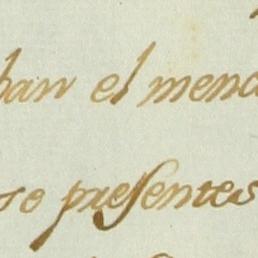 ban el menc
so presentes